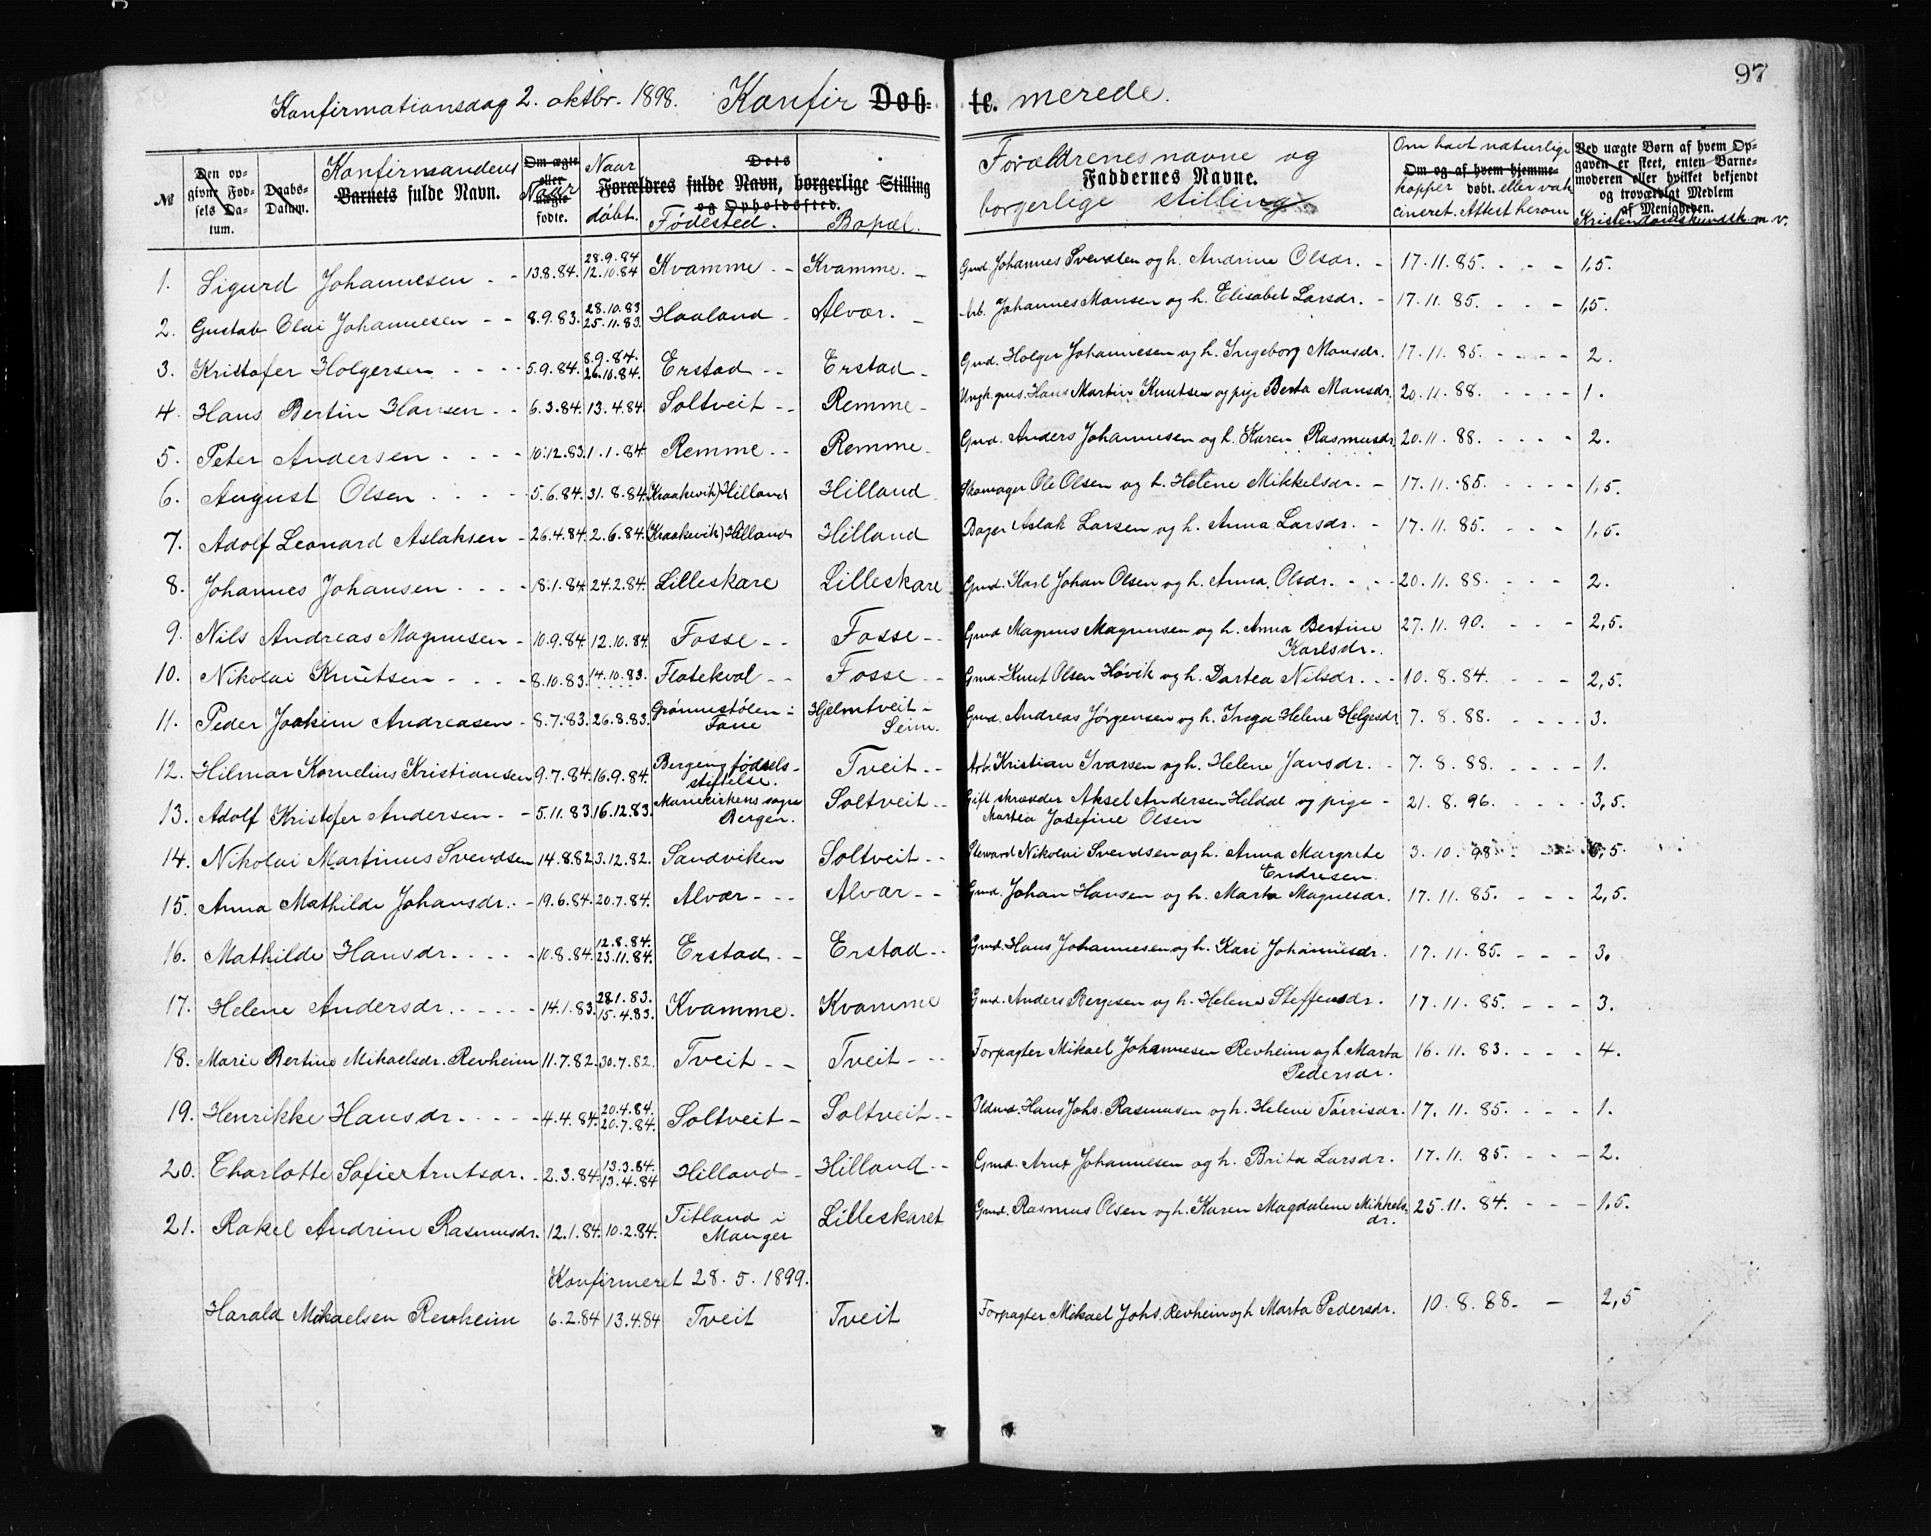 97
Konfirmationsdag 2. oktbr. 1898. Konfir Døb- te. merede.
№
Den opgivne Fødsels Datum.
Daabs-Datum.
Konfirmandens
Barnets fulde Navn.
Om ægte eller uægte fødte.
Naar
Naar døbt.
Dets Forældres fulde Navn, borgerlige Stilling og Opholdssted.
Fødested. Bopæl.
Forældrenes navne og
Faddernes Navne.
borgerlige stilling
Om havt naturlige
Om og af hvem hjemmedøbt.
kopper eller vakcineret. Attest herom
Ved uægte Børn af hvem Opgaven er skeet, enten Barnemoderen eller hvilket bekjendt og troværdigt Medlem af Menigheden.
Kristendomskundsk. m. v.
1. Sigurd Johannesen - 13.8.84. 28.9.84 12.10.84 Kvamme - Kvamme. - Gmd. Johannes Svendsen og h. Andrine Olsdr. - 17.11.85. - - - 1,5.
2. Gustav Olai Johannesen - - 8.9.83. 28.10.83 25.11.83. Haaland - Alvær. - Arb. Johannes Monsen og h. Elisabet Larsdr. - 17.11.85. - - - 1,5.
3. Kristofer Holgersen - - - - 5.9.84. 8.9.84. 26.10.84. Erstad - - Erstad - Gmd. Holger Johannesen og h. Ingeborg Monsdr. 17.11.85. - - - - 2.
4. Hans Bertin Hansen - - 6.3.84. 13.4.84. Soltveit - - Remme - Ungk. gms. Hans Martin Knutsen og pige Berta Monsdr. 20.11.88. - - - - 1.
5. Peter Andersen - - - - 10.12.83. 1.1.84 Remme - - Remme - Gmd. Anders Johannesen og h. Karen Rasmusdr. 20.11.88. - - - - 2.
6. August Olsen - - - - 5.6.84. 31.8.84. (Kraakevik) Hilland Hilland Skomager Ole Olsen og h. Helene Mikkelsdr. - 17.11.85. - - - - 1,5.
7. Adolf Leonard Aslaksen - 26.4.84. 2.6.84. (Kraakevik) Hilland Hilland Bager Aslak Larsen og h. Anna Larsdr. - 17.11.85. - - - 1,5.
8. Johannes Johansen - - - - 18.1.84. 24.2.84. Lilleskare Lilleskare Gmd. Karl Johan Olsen og h. Anna Olsdr. - - - 20.11.88. - - - 2.
9. Nils Andreas Magnusen - 10.9.84. 12.10.84. Fosse - - Fosse - - Gmd Magnus Magnusen og h. Anna Bertine Karlsdr. 27.11.90. - - - 2,5.
10. Nikolai Knutsen - - - - 8.10.83. 14.10.83. Flatekval - - Fosse - - Gmd. Knut Olsen Høvik og h. Dortea Nilsdr. - - 10.8.84. - - - 2,5.
11. Peder Joakim Andreasen - 8.7.83. 26.8.83. Grønnestølen i Fane Hjelmtveit - Seim. Gmd. Andreas Jørgensen og h. Inga Helene Helgesdr. 7.8.88. - - - - 3.
12. Hilmar Kornelius Kristiansen 9.7.84. 16.9.84. Bergens fødselsstiftelse. Tveit - - Arb. Kristian Ivarsen og h. Helene Jansdr. - 7.8.88. - - - - 1.
13. Adolf Kristofer Andersen - - 5.11.83. 16.12.83. Mariekirkens sogn Bergen. Soltveit - - Gift skrædder Aksel Andersen Heldal og pige - Martea Josefine Olsen 21.8.96. - - - - 3,5.
14. Nikolai Martinus Svendsen 14.8.82. 3.12.82. Sandviken Soltveit - - Steward Nikolai Svendsen og h. Anna Margrete Endresen. 3.10.98
15. Anna Mathilde Johansdr. - 19.6.84. 20.7.84. Alvær - - - Alvær - - Gmd. Johan Hansen og h. Marta Magnesdr. 17.11.85. - - - 2,5.
16. Mathilde Hansdr. - - - - 10.8.84. 12.8.84. 23.11.84. Erstad - - Erstad - - Gmd. Hans Johannesen og h. Kari Johannesdr. 17.11.85. - - - 3.
17. Helene Andersdr. - - - - 14.1.83. 28.1.83. 15.4.83. Kvamme. Kvamme Gmd. Anders Bergesen og h. Helene Steffensdr. 17.11.85. - - - 3.
18. Marie Bertine Mikaelsdr. Revheim 11.7.82. 30.7.82. Tveit - - Tveit - - - Forpagter Mikael Johannesen Revheim og h. Marta Pedersdr. 16.11.83. - - - 4.
19. Henrikke Hansdr. - - - - 4.4.84. 20.4.84. 20.7.84. Soltveit - Soltveit - - Pldmd. Hans Johs. Rasmusen og h. Helene Torrisdr. 17.11.85. - - - 1.
20. Charlotte Sofie Arntsdr. - 2.3.84. 13.3.84. 13.4.84 Hilland - Hilland - - Gmd. Arnt Johannesen og h. Brita Larsdr. 17.11.85. - - - 2.
21. Rakel Andrine Rasmusdr. 12.1.84. 10.2.84. Titland i Manger Lilleskaret Gmd. Rasmus Olsen og h. Karen Magdalene Mikkelsdr. 25.11.84. - - - 1,5.
Konfirmeret 28.5.1899.
Harald Mikaelsen Revheim 6.2.84 13.4.84 Tveit Tveit Forpagter Mikael Johs. Revheim og h Marta Pedersdr. 10.8.88. - 2,5